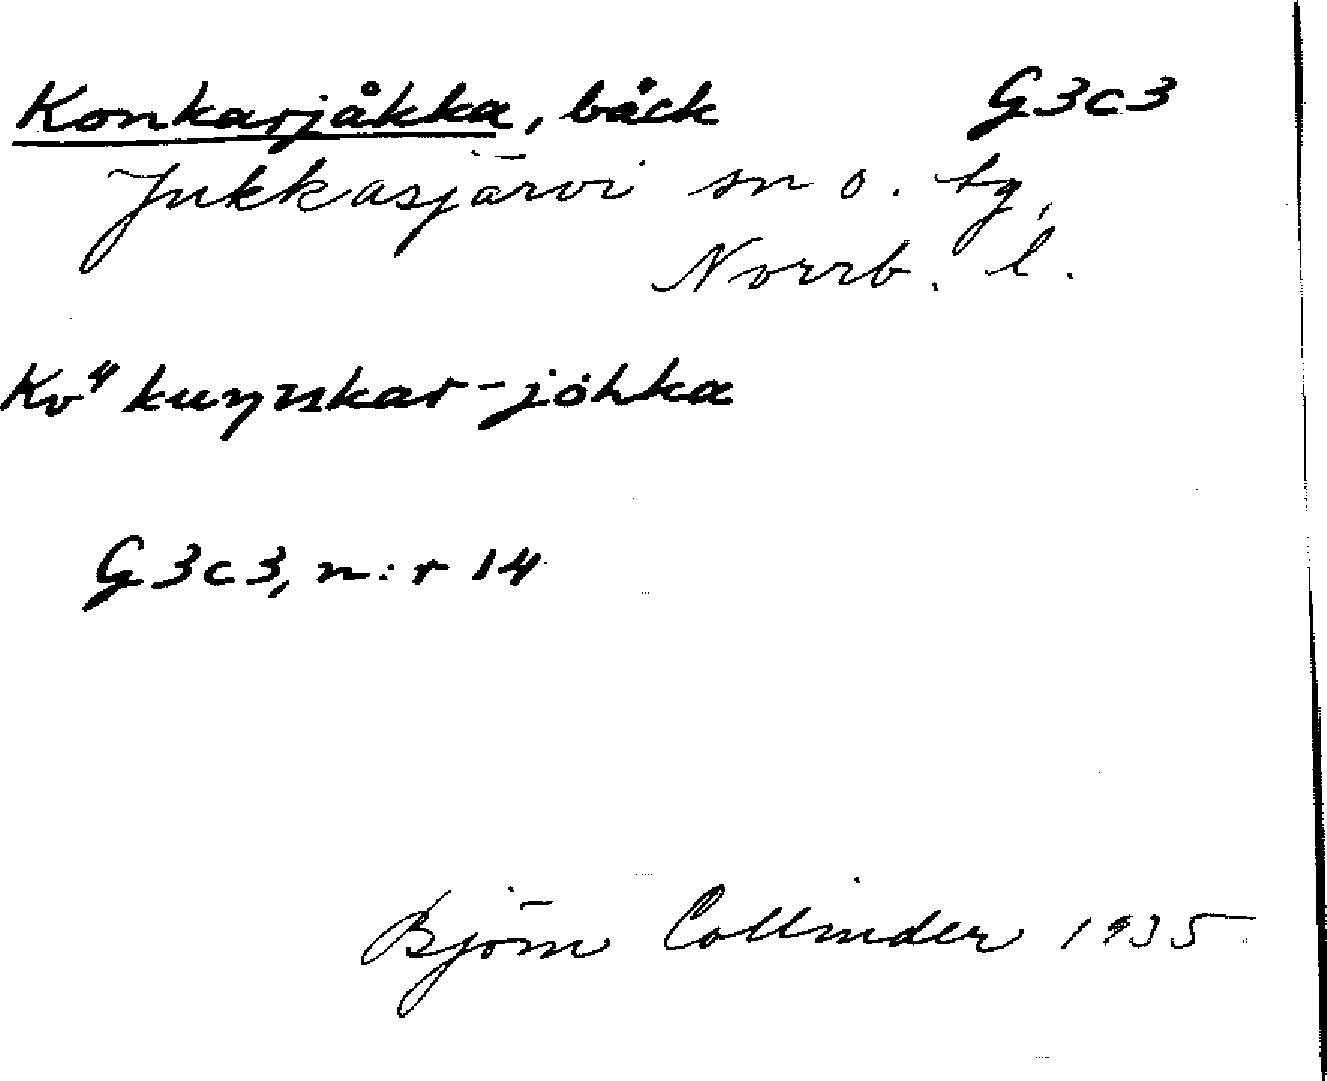 Konkarjåkka, bäck G3c3
Jukkasjärvi sn o. tg,
Norrb. l.
Kv⁴ kuŋŋkar-jòhka
G3c3, n:r 14
Björn Collinder 1935